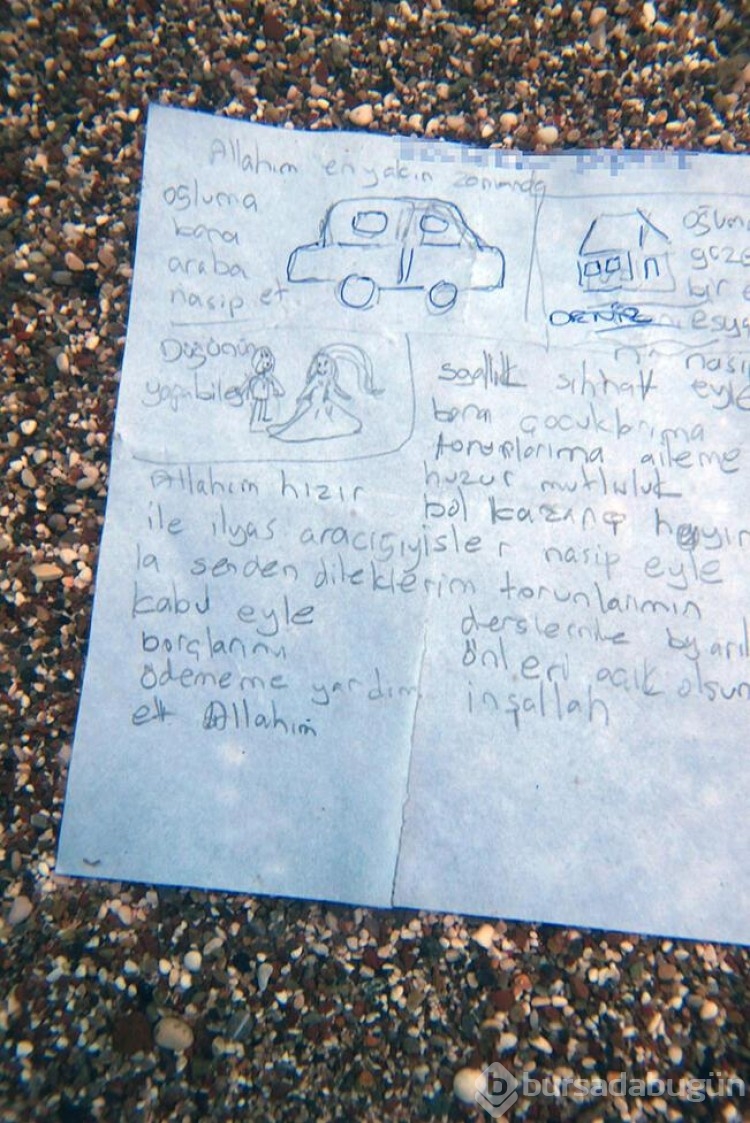 Allahım en yakın zamanda
oğluma
bana
araba
nasip et
oğlum
güze
bir
DENİZ eşya
nasip
eyle
Düğünün
yapabile
sağlık sıhhat
bana çocuklarıma
torunlarıma aileme
huzur mutluluk
bol kazanç hayır
işler nasip eyle
torunlarımın
derslerinde başarıl
önleri açık olsun
inşallah
Allahım hızır
ile ilyas aracıığıy
la senden dileklerim
kabul eyle
borçlarımı
ödememe yardım
et Allahım
bursadabugün